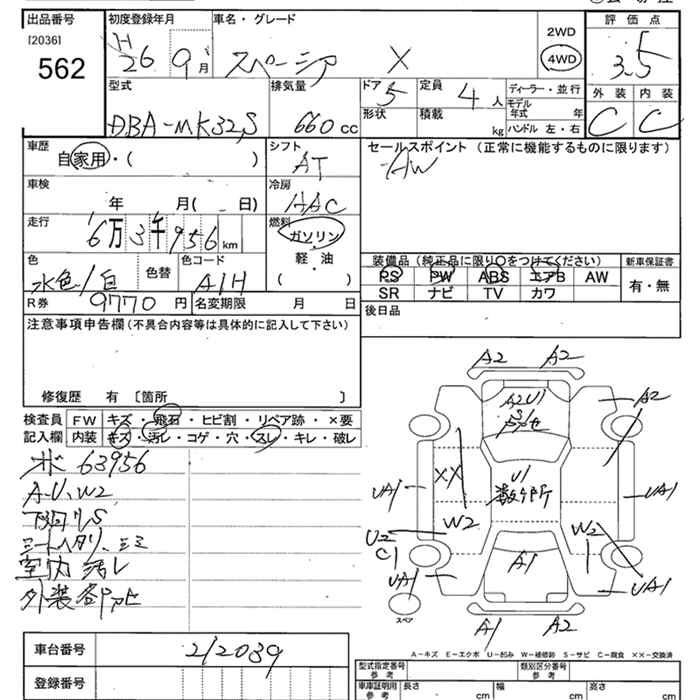 出品番号
[2036]
562
初度登録年月
H
26 9月
車名・グレード
スペーシア X
2WD
4WD
評価点
3.5
外装 内装
C C
型式
DBA-MK32S
排気量
660 cc
ドア
5
形状
定員
4人
積載
kg
ディーラー・並行
モデル年式 年
ハンドル 左・右
車歴
自家用・( )
シフト
AT
セールスポイント (正常に機能するものに限ります)
AW
車検
年 月( 日)
冷房
AAC
走行
6万3千956km
燃料
ガソリン
軽・油
( )
色
水色/白
色替
色コード
A1H
装備品(純正品に限り○をつけてください)
PS PW ABS エアB AW
SR ナビ TV カワ
新車保証書
有・無
R券 9770円
名変期限 月 日
後日品
注意事項申告欄(不具合内容等は具体的に記入して下さい)
修復歴 有 〔箇所 〕
検査員記入欄
FW キズ・飛石・ヒビ割・リペア跡・×要
内装 キズ・汚レ・コゲ・穴・スレ・キレ・破レ
メ 63956
A・U、W2
下回りS
シートヘタリ、シミ
室内汚レ
外装各部
A2 A2
A2U1
S
A2
XX
U1
数ヶ所
UA1
UA1
U2
C1
W2
W2
UA1
A1
UA1
A1 A2
スペア
A-キズ E-エクボ U-凹み W-補修跡 S-サビ C-腐食 ××-交換済
車台番号
212039
登録番号
型式指定番号
参考
類別区分番号
参考
車庫証明用
参考
長さ cm
幅 cm
高さ cm